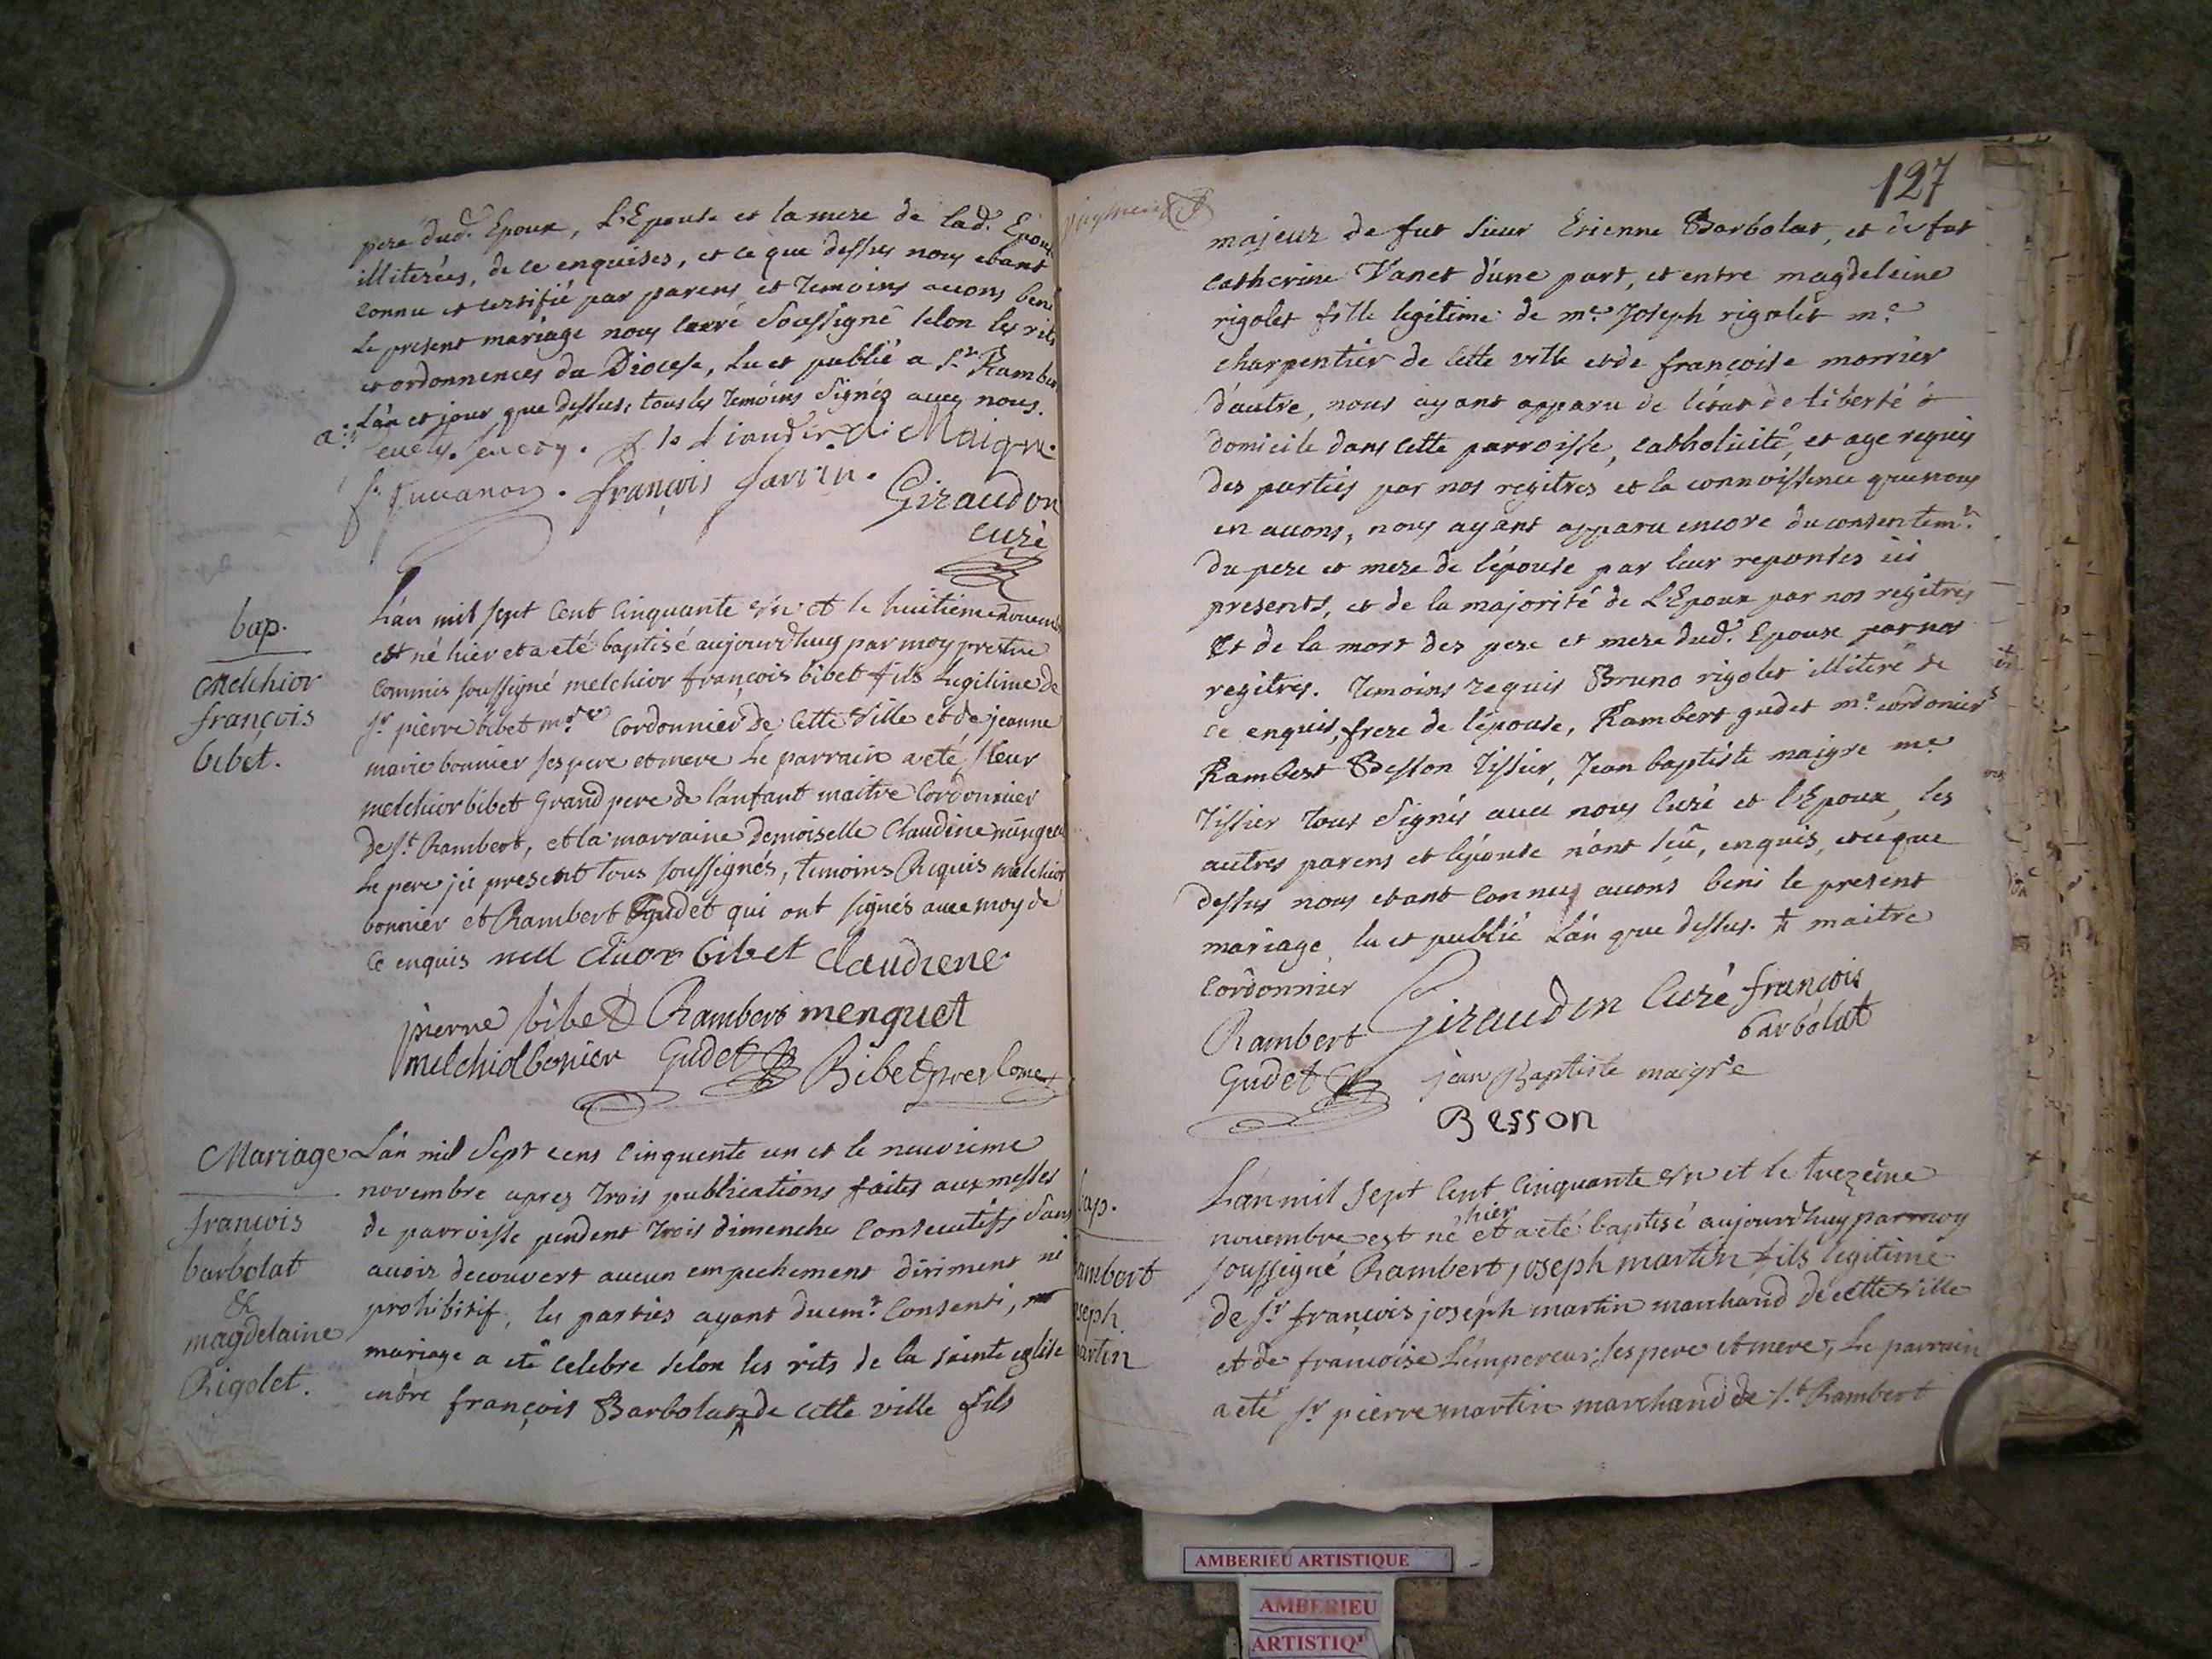 pere dud. Epoux, L'Epouse et la mere de lad. Epouse
illiterées, de ce enquises, et ce que dessus nous etant
connu et certifié par parens et temoins avons beni
Le present mariage nous Curé soussigné selon les rits
et ordonnences du Diocese, Lu et publié a St Rambert
L'an et jour que dessus, tous les temoins signés avec nous.
Maigre.
françois savvin. Giraudon
curé
bap.
Melchior
françois
bibet.
L'an mil sept Cent Cinquante un et le huitieme novembre
est né hier et a eté baptisé aujourdhuy par moy prestre
Commis soussigné melchior françois bibet fils Legitime de
sr pierre bibet mtre Cordonnier de Cette Ville et de jeanne
marie bonnier ses pere et mere Le parrain a eté sieur
melchior bibet Grand pere de l'anfant maitre Cordonnier
de St Rambert, et la marraine demoiselle Claudine
Le pere ici present tous soussignés, temoins Requis melchior
bonnier et Rambert Gudet qui ont signés avec moy de
Ce enquis mel chior bibet Claudiene
pierre bibet Rambert menguet
melchiol bonier Gudet Bibet
Mariage
françois
barbolat
&
magdelaine
Rigolet.
L'an mil Sept cens Cinquente un et le neuvieme
novembre apres trois publications faites aux messes
de parroisse pendent trois dimenches Consecutifs sans
avoir decouvert aucun empechement diriment ni
prohibitif, les parties ayant duemt Consenti,
mariage a eté celebre selon les rits de la sainte eglise
entre françois Barbolat de cette ville fils
127
majeur de fut sieur Etienne Barbolat, et de fut
catherine Vanet d'une part, et entre magdeleine
rigolet fille legitime de me Joseph rigolet me
charpentier de cette ville et de françoise morrier
d'autre, nous ayant apparu de l'etat de liberté &
domicile dans cette parroisse, catholicité, et age requis
des parties par nos regitres et la connoissence que nous
en avons, nous ayant apparu encore du consentemt
du pere et mere de l'épouse par leur reponses ici
presents, et de la majorité de L'Epoux par nos regitres
Et de la mort des pere et mere dud. Epoux par nos
regitres. Temoins requis Bruno rigolet illiteré de
ce enquis, frere de l'épouse, Rambert gudet me cordonier
Rambert Besson Tissier, Jean baptiste maigre me
Tissier tous signés avec nous Curé et l'Epoux, les
autres parens et l'épouse n'ont sçu, enquis, et ce que
dessus nous etant connus avons beni le present
mariage, lu et publié L'an que dessus. maitre
Cordonnier
Giraudon Curé françois
barbolat
Rambert
Gudet jean Baptiste maigre
Besson
bap.
Rambert
joseph
martin
L'an mil sept Cent Cinquante un et le treizème
hier
novembre est né et a eté baptisé aujourdhuy par moy
soussigné Rambert joseph martin fils legitime
de sr françois joseph martin marchand de cette ville
et de françoise L'empereur, ses pere et mere, Le parrain
a eté sr pierre martin marchand de St Rambert
AMBERIEU ARTISTIQUE
AMBERIEU
ARTISTIQ